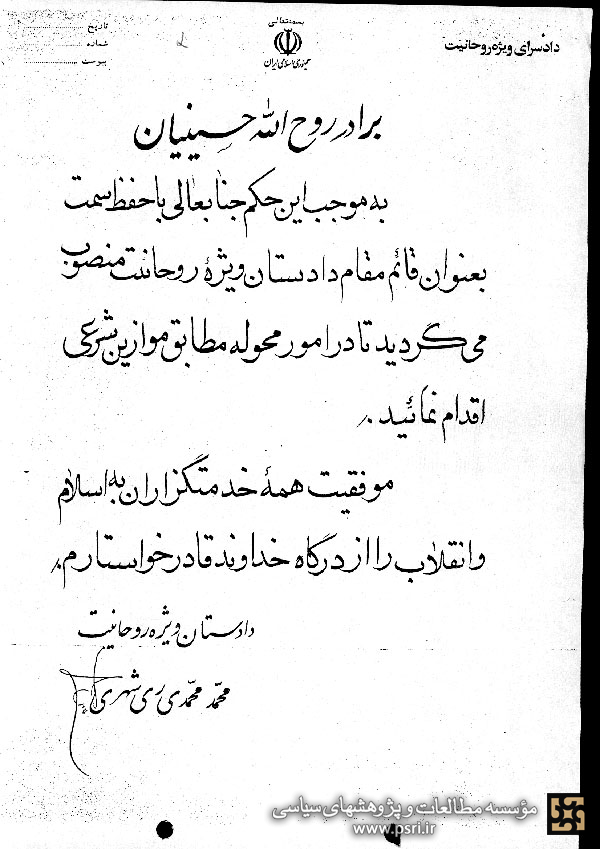 بسمه‌تعالی
جمهوری اسلامی ایران
دادسرای ویژه روحانیت
تاریخ
شماره
پیوست
برادر روح الله حسینیان
به موجب این حکم جنابعالی با حفظ سمت
بعنوان قائم مقام دادستان ویژهٔ روحانیت منصوب
می گردید تا در امور محوله مطابق موازین شرعی
اقدام نمائید ./
موفقیت همهٔ خدمتگزاران به اسلام
و انقلاب را از درگاه خداوند قادر خواستارم ./
دادستان ویژه روحانیت
محمّد محمّدی ری شهری
مؤسسه مطالعات و پژوهشهای سیاسی
www.psri.ir